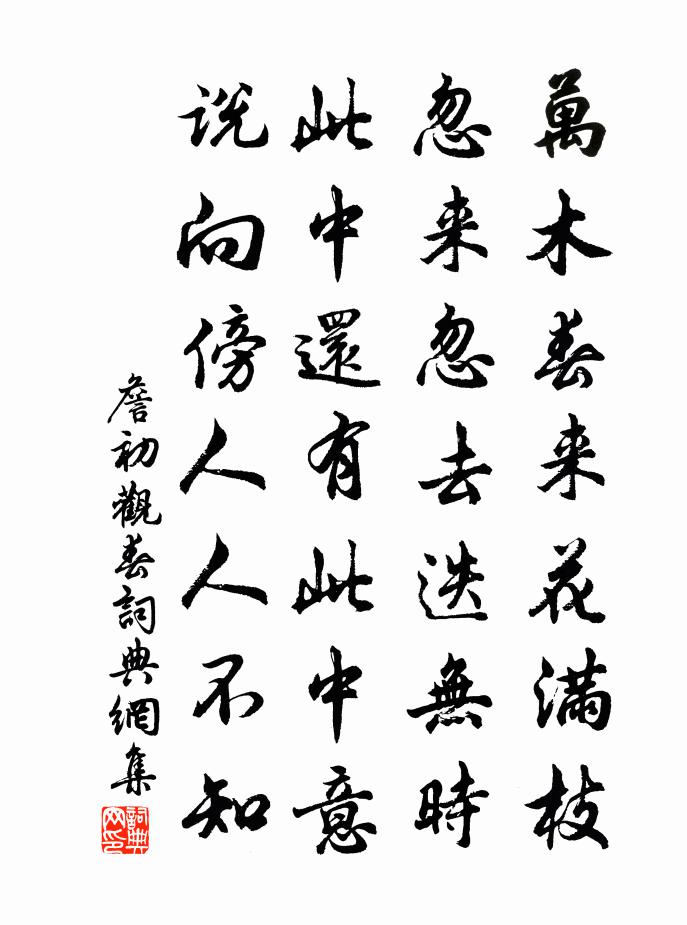 萬木春来花滿枝
忽来忽去迭無時
此中還有此中意
説向傍人人不知
詹初觀春詞典網集
詞典网印